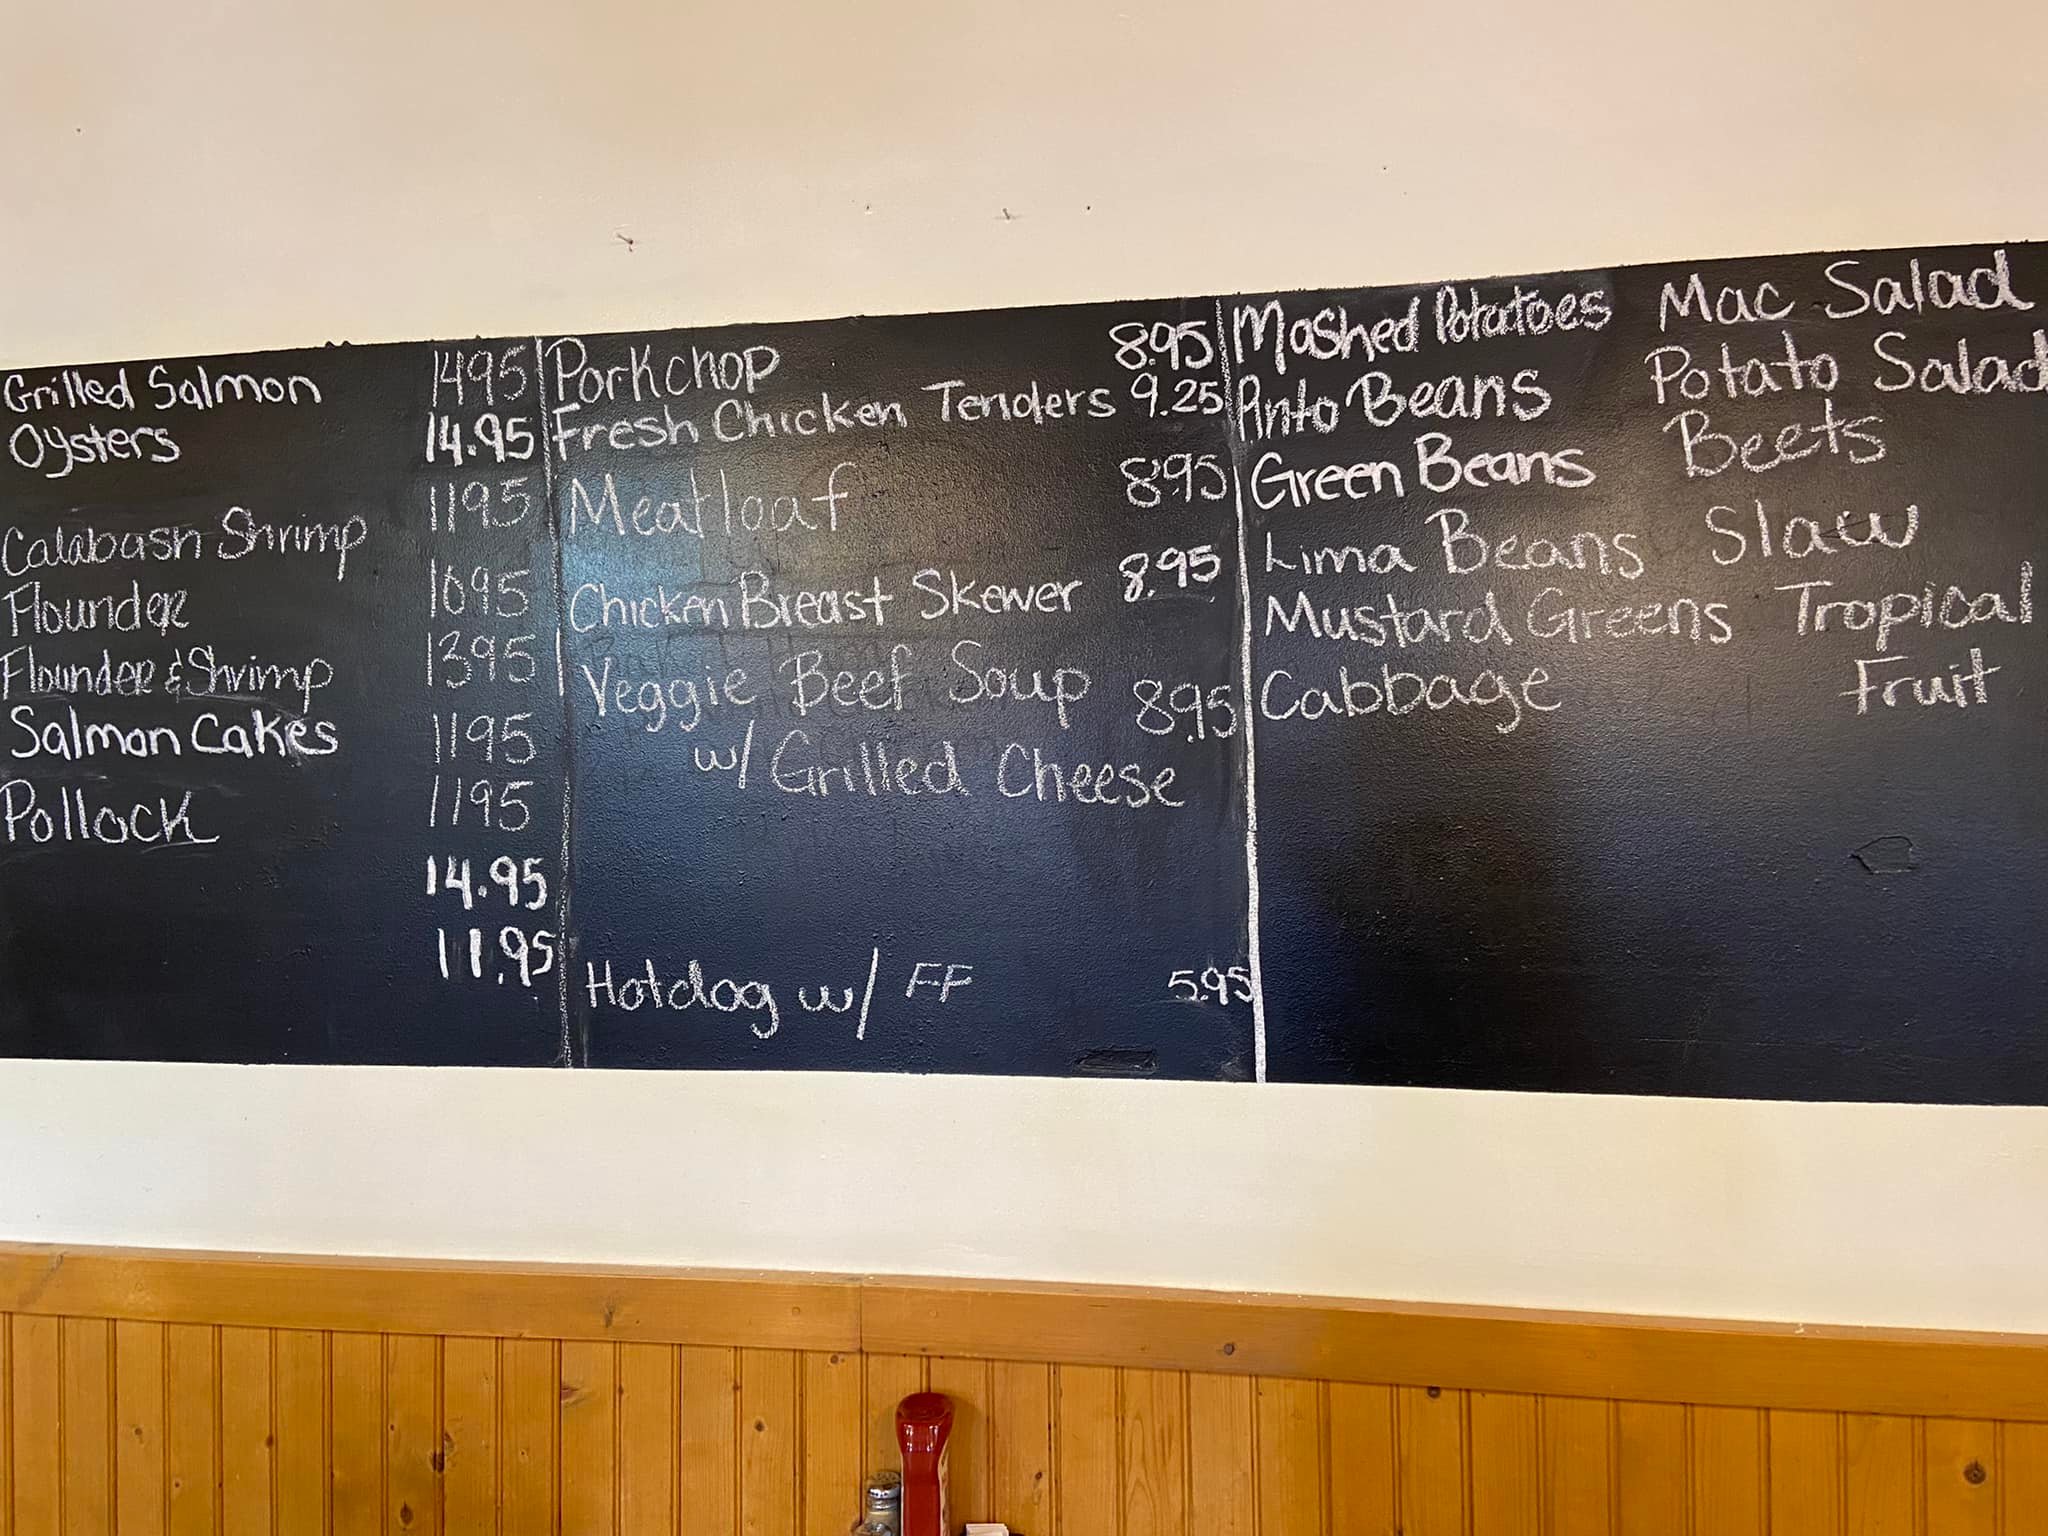 Grilled Salmon 1495
Oysters 14.95
1195
Calabash Shrimp
Flounder 1095
Flounder & Shrimp 1395
Salmon Cakes 1195
Pollock 1195
14.95
11.95
Porkchop 8.95
Fresh Chicken Tenders 9.25
Meatloaf 8.95
Chicken Breast Skewer 8.95
Veggie Beef Soup 8.95
w/ Grilled Cheese
Hotdog w/ FF 5.95
Mashed Potatoes
Pinto Beans
Green Beans
Lima Beans
Mustard Greens
Cabbage
Mac Salad
Potato Salad
Beets
Slaw
Tropical
Fruit